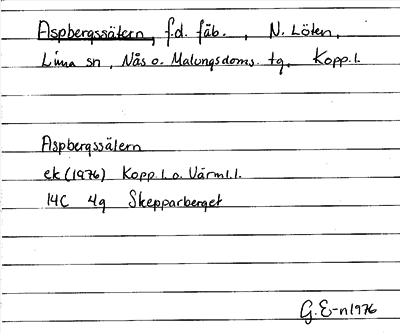 Aspbergssätern, f.d. fäb., N. Löten,
Lima sn, Nås o. Malungs doms. tg, Kopp.l.
Aspbergssätern
ek (1976) Kopp.l. o. Värml.l.
14C 4g Skepparberget
G. E-n 1976